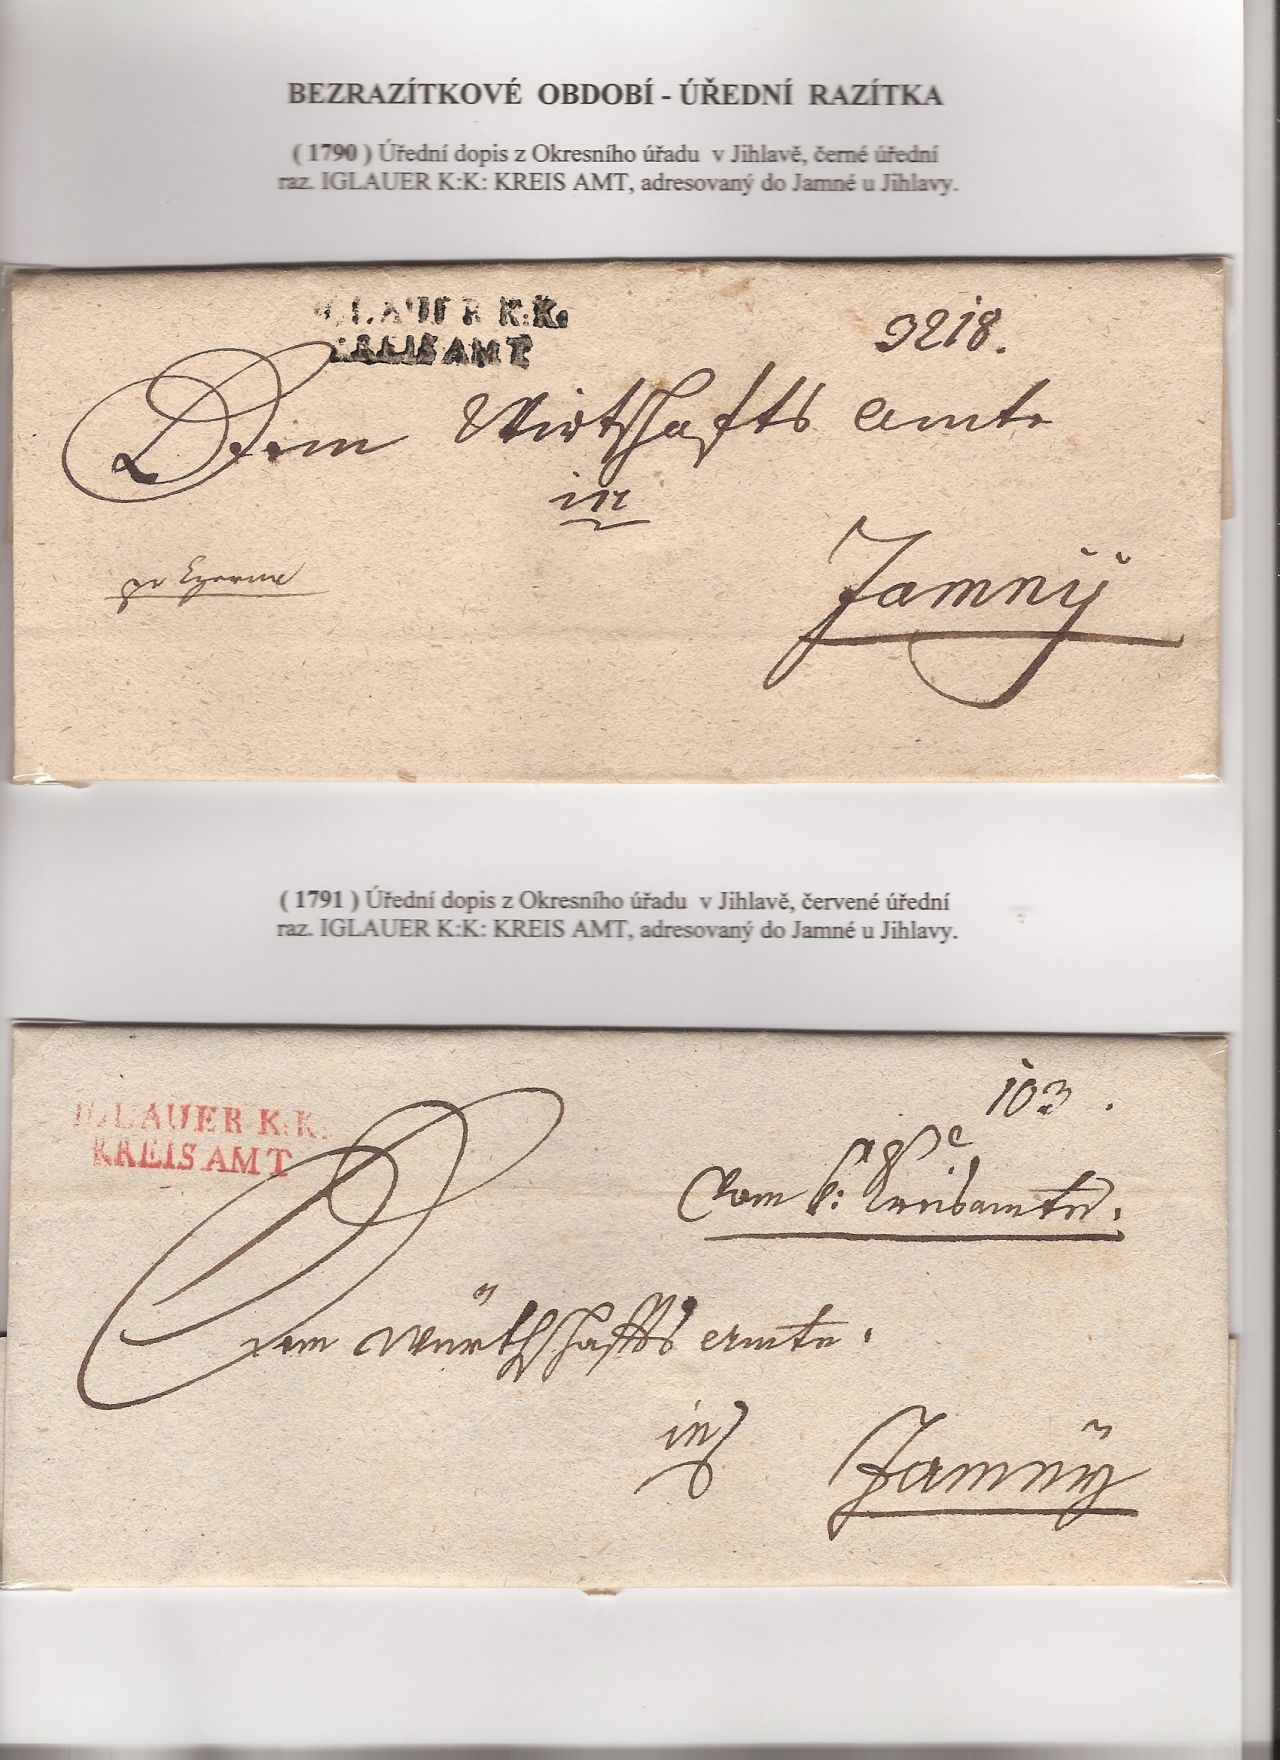 BEZRAZÍTKOVÉ OBDOBÍ - ÚŘEDNÍ RAZÍTKA
( 1790 ) Úřední dopis z Okresního úřadu v Jihlavě, černé úřední
raz. IGLAUER K:K: KREIS AMT, adresovaný do Jamné u Jihlavy.
IGLAUER K:K:
KREIS AMT
9218.
Dem Wirtschafts Amte
in
Jamny
( 1791 ) Úřední dopis z Okresního úřadu v Jihlavě, červené úřední
raz. IGLAUER K:K: KREIS AMT, adresovaný do Jamné u Jihlavy.
IGLAUER K:K:
KREIS AMT
103.
Vom k: Kreisamte.
Dem Würthschaffts Amte.
in
Jamny